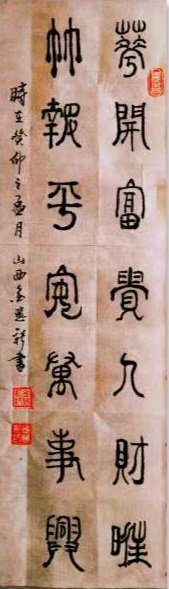 華開富貴人財旺
竹報平安萬事興
時在癸卯之孟月 山西 書